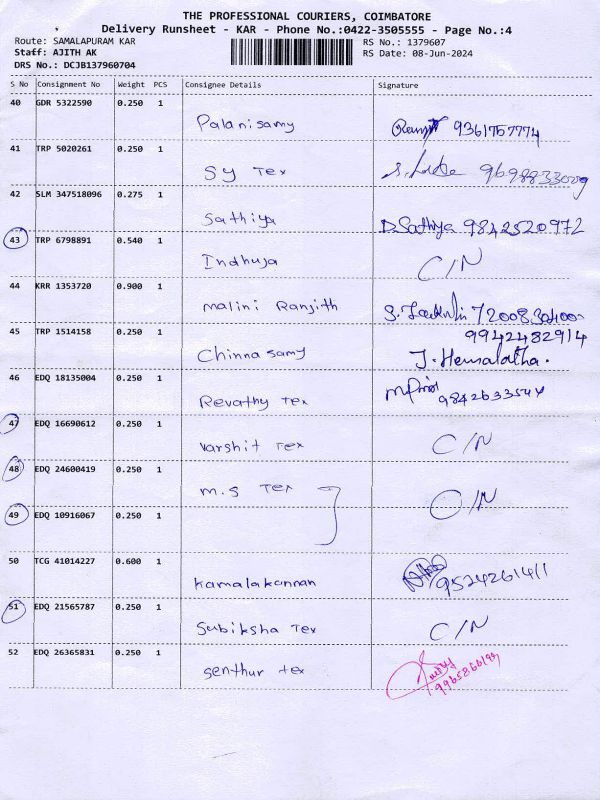 THE PROFESSIONAL COURIERS, COIMBATORE
Delivery Runsheet - KAR - Phone No.:0422-3505555 - Page No.:4
Route: SAMALAPURAM KAR
RS No.: 1379607
Staff: AJITH AK
RS Date: 08-Jun-2024
DRS No.: DCJB137960704
S No Consignment No Weight PCS Consignee Details Signature
40 GDR 5322590 0.250 1
Palanisamy 9361757774
41 TRP 5020261 0.250 1
Sy Tex 9698833009
42 SLM 347518096 0.275 1
Sathiya D.Sathya 9842520972
43 TRP 6798891 0.540 1
Indhuja C/N
44 KRR 1353720 0.900 1
Malini Ranjith
45 TRP 1514158 0.250 1 9942482914
Chinnasamy J. Hemalatha.
46 EDQ 18135004 0.250 1
Revathy Tex
47 EDQ 16690612 0.250 1
Varshit Tex C/N
48 EDQ 24600419 0.250 1
M.S Tex C/N
49 EDQ 10916067 0.250 1
50 TCG 41014227 0.600 1
Kamalakannan 9524261411
51 EDQ 21565787 0.250 1
Subiksha Tex C/N
52 EDQ 26365831 0.250 1
Senthur Tex